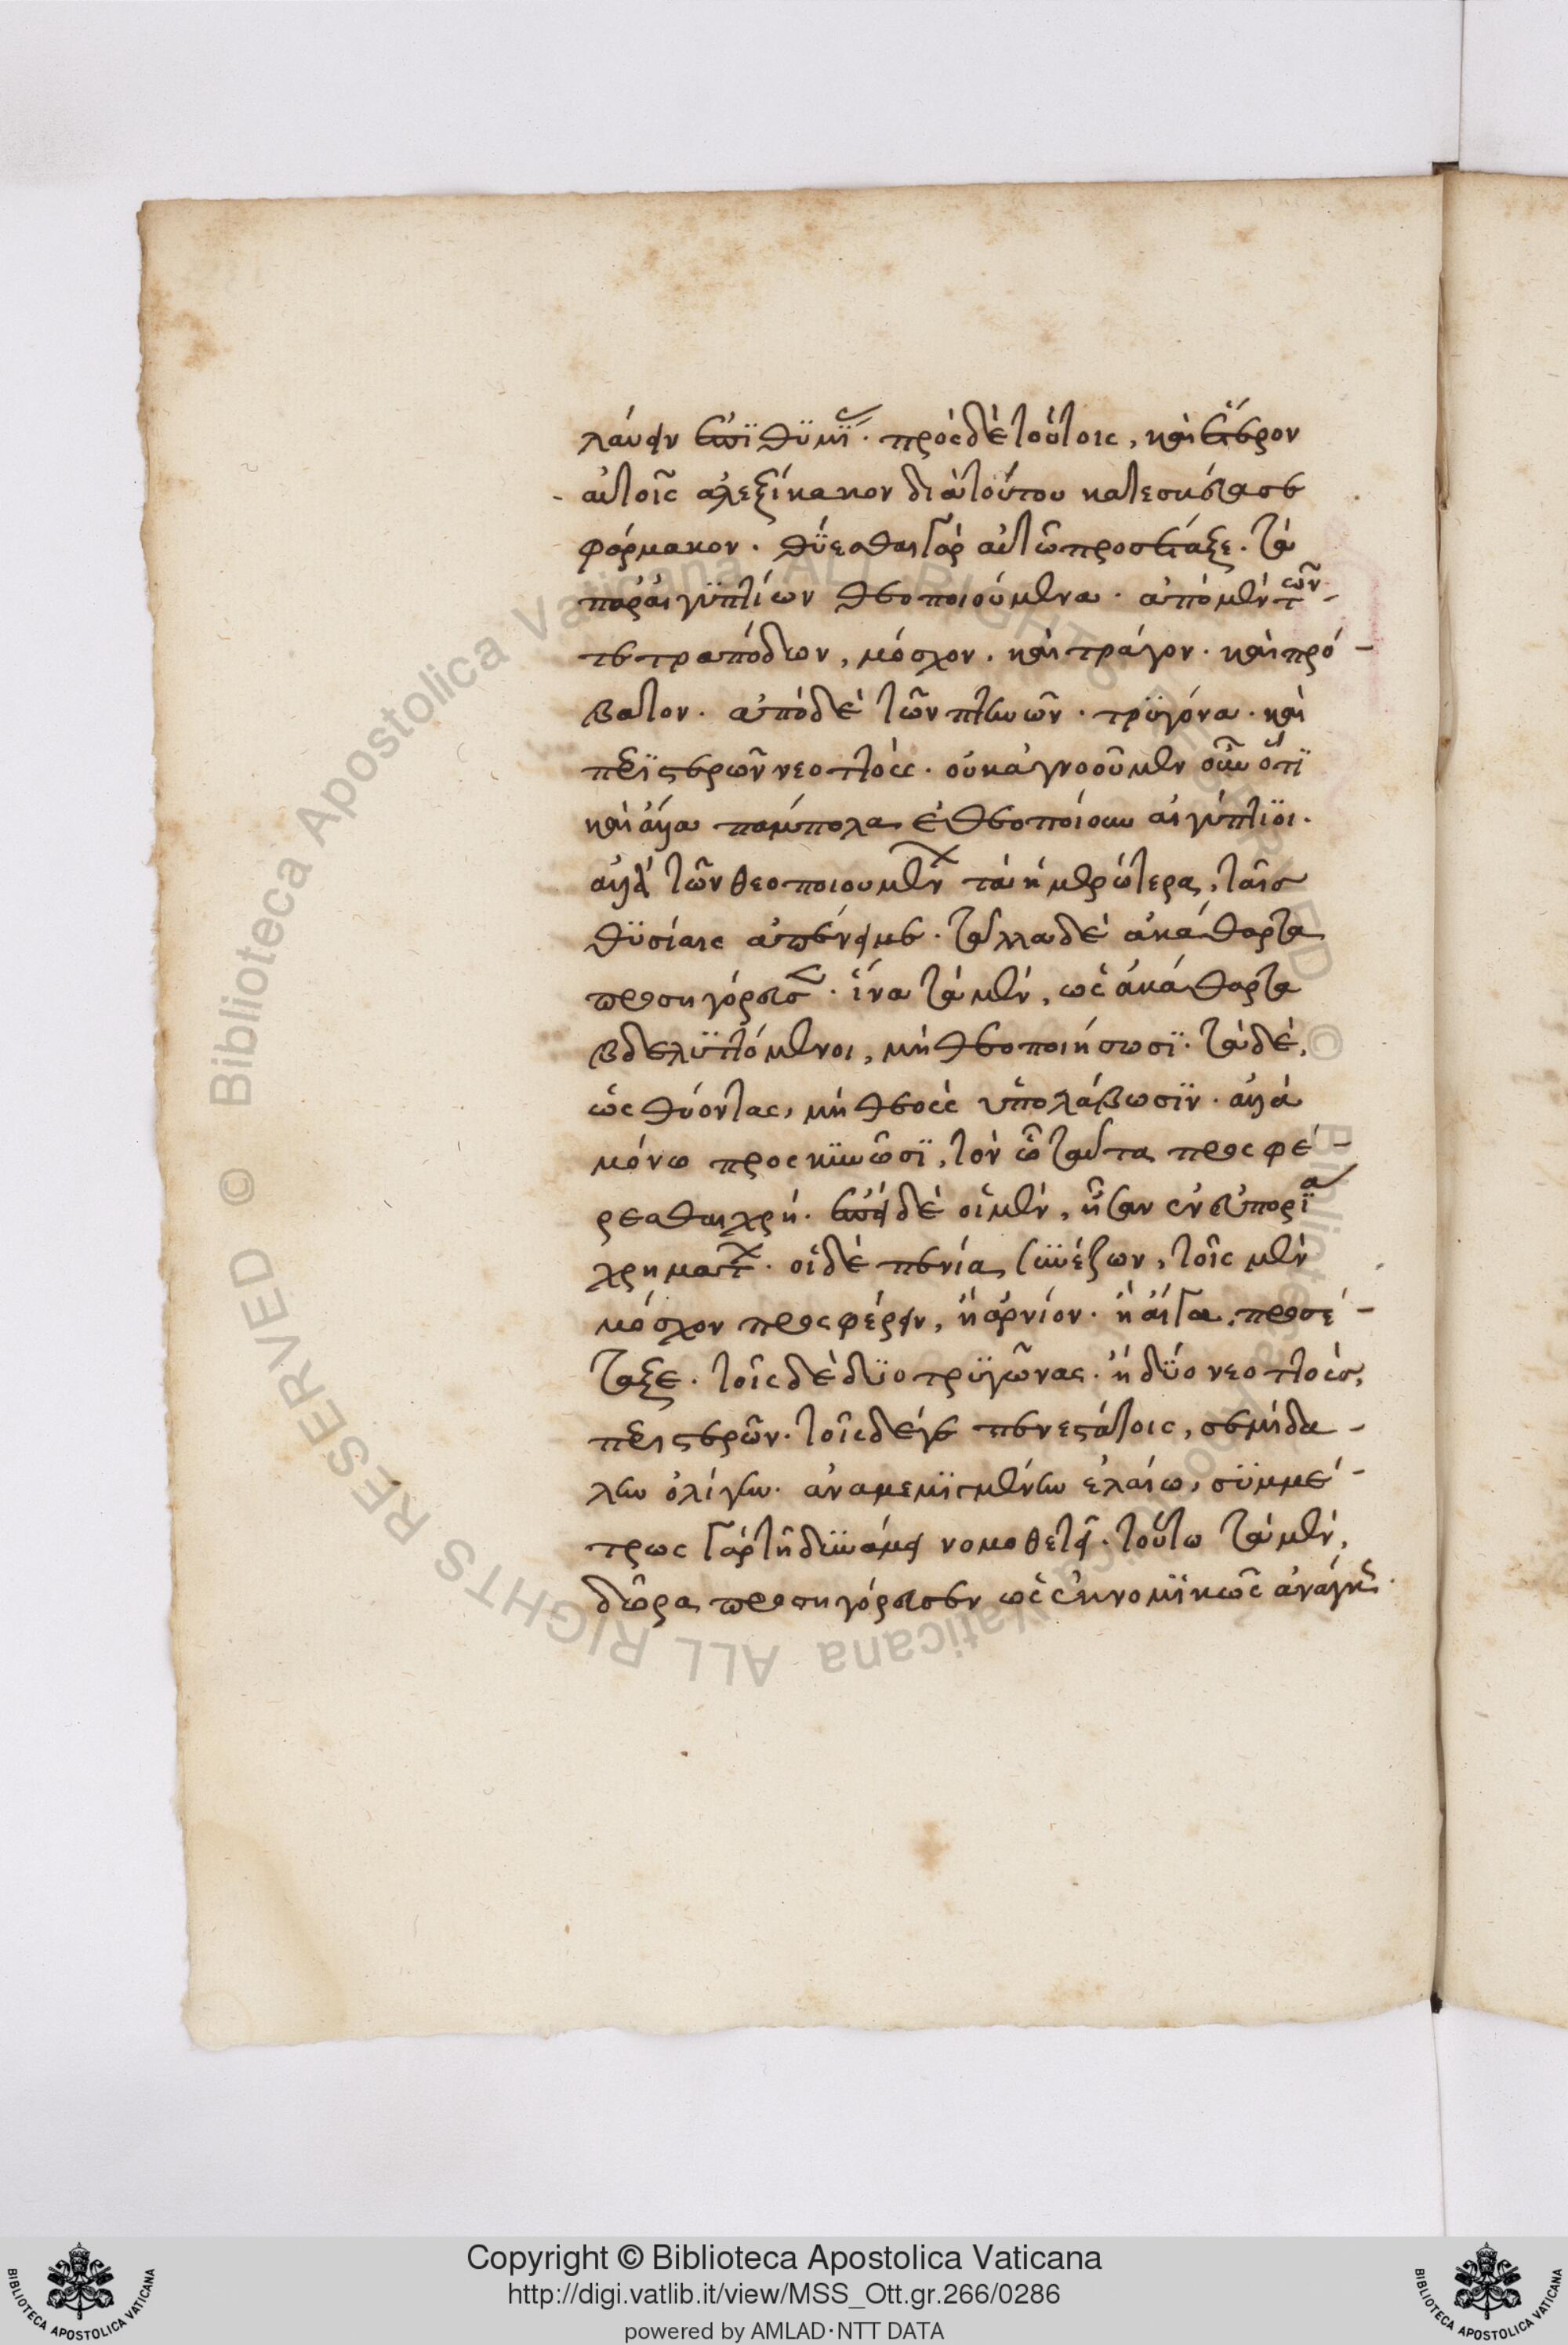 λαύειν ἐπιθυμίας· πρὸς δὲ τούτοις, καὶ ἕτερον
αὐτοῖς ἀλεξίκακον διὰ τούτου κατεσκεύασε
φάρμακον. θύεσθαι γὰρ αὐτῷ προσέταξε· τὰ
παρ' αἰγυπτίων θεοποιούμενα· ἀπὸ μὲν τῶν
τετραπόδων, μόσχον· καὶ τράγον· καὶ πρό-
βατον· ἀπὸ δὲ τῶν πτηνῶν· τρυγόνα· καὶ
περιστερῶν νεοττούς· οὐκ ἀγνοοῦμεν οὖν ὅτι
καὶ ἄλλα πάμπολλα ἐθεοποίουν αἰγύπτιοι·
ἀλλὰ τῶν θεοποιουμένων τὰ ἡμερώτερα, ταῖς
θυσίαις ἀπένειμε· τἄλλα δὲ ἀκάθαρτα
προσηγόρευσεν· ἵνα τὰ μὲν, ὡς ἀκάθαρτα
βδελυττόμενοι, μὴ θεοποιήσωσι· τὰ δὲ,
ὡς θύοντας, μὴ θεοὺς ὑπολάβωσιν· ἀλλὰ
μόνω προσκυνῶσι, τὸν ᾧ ταῦτα προσφέ-
ρεσθαι χρή. ἐπεὶ δὲ οἱ μὲν, ἦσαν ἐν εὐπορίᾳ
χρημάτων· οἱ δὲ πενίᾳ συνέζων, τοῖς μὲν
μόσχον προσφέρειν, ἢ ἀρνίον· ἢ αἶγα, προσέ-
ταξε· τοῖς δὲ δύο τρυγῶνας· ἢ δύο νεοττοὺς,
περιστερῶν· τοῖς δέ γε πενεστάτοις, σεμίδα-
λιν ὀλίγην· ἀναμεμιγμένην ἐλαίω, συμμέ-
τρως γὰρ τῇ δυνάμει νομοθετεῖ· τούτω τὰ μὲν,
δῶρα προσηγόρευσεν ὡς ἐκ νομικῶς ἀνάγκης·
Copyright © Biblioteca Apostolica Vaticana
http://digi.vatlib.it/view/MSS_Ott.gr.266/0286
powered by AMLAD·NTT DATA